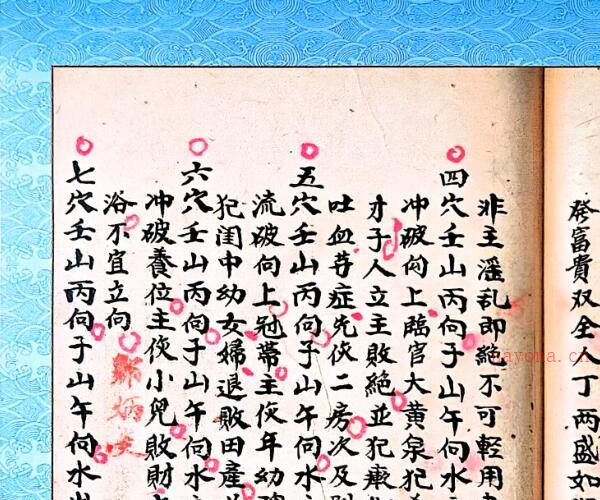 發富貴双全人丁兩盛如
非主滛乱即絶不可輕用
四穴壬山丙向子山午向水
冲破向上臨官大黄泉犯
才子人立主敗絶並犯
吐血等症先伤二房次及别
五穴壬山丙向子山午向水
流破向上冠帶主伤年幼
犯闺中幼女婦退敗田產
六穴壬山丙向子山午向水
冲破養位主伤小兒敗財
浴不宜立向
七穴壬山丙向子山午向水出
nayona.cn